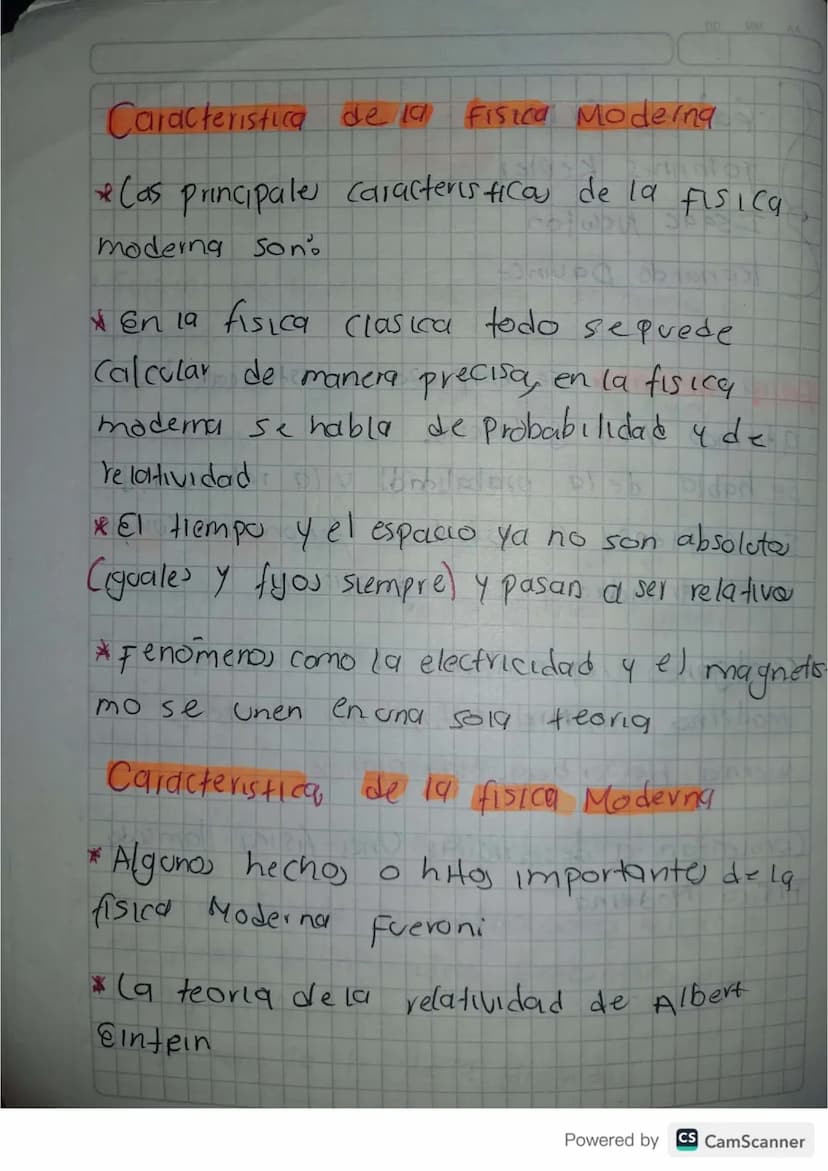 Caracteristica de la Fisica Moderna
*Las principales caracteristicas de la fisica
moderna son:
* En la fisica clasica todo se puede
calcular de manera precisa, en la fisica
moderna se habla de probabilidad y de
relatividad
* El tiempo y el espacio ya no son absolutos
(iguales y fijos siempre) y pasan a ser relativos
* Fenomenos como la electricidad y el magnetis-
mo se unen en una sola teoria
Caracteristica de la fisica Moderna
* Algunos hechos o hitos importantes de la
fisica Moderna fueron:
* La teoria de la relatividad de Albert
Eintein
Powered by CS CamScanner